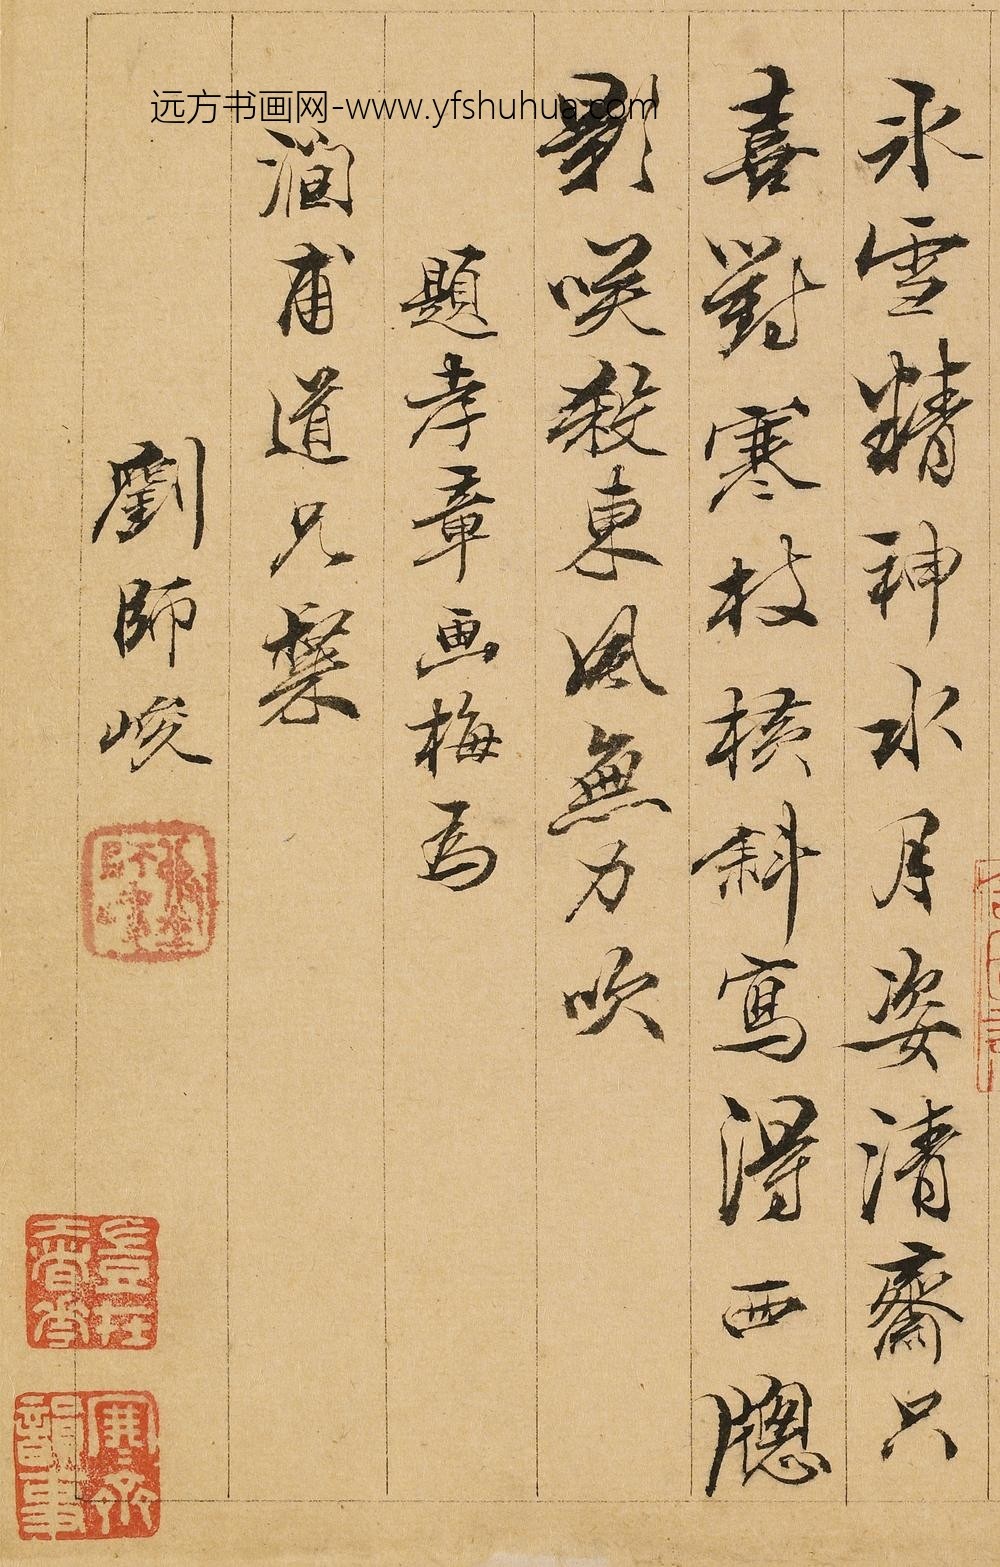 远方书画网-www.yfshuhua.com
氷雪精神水月姿清齋只
喜對寒枝橫斜寫得西牕
影咲殺東風無力吹
題孝章画梅為
潤甫道兄粲
劉師峻